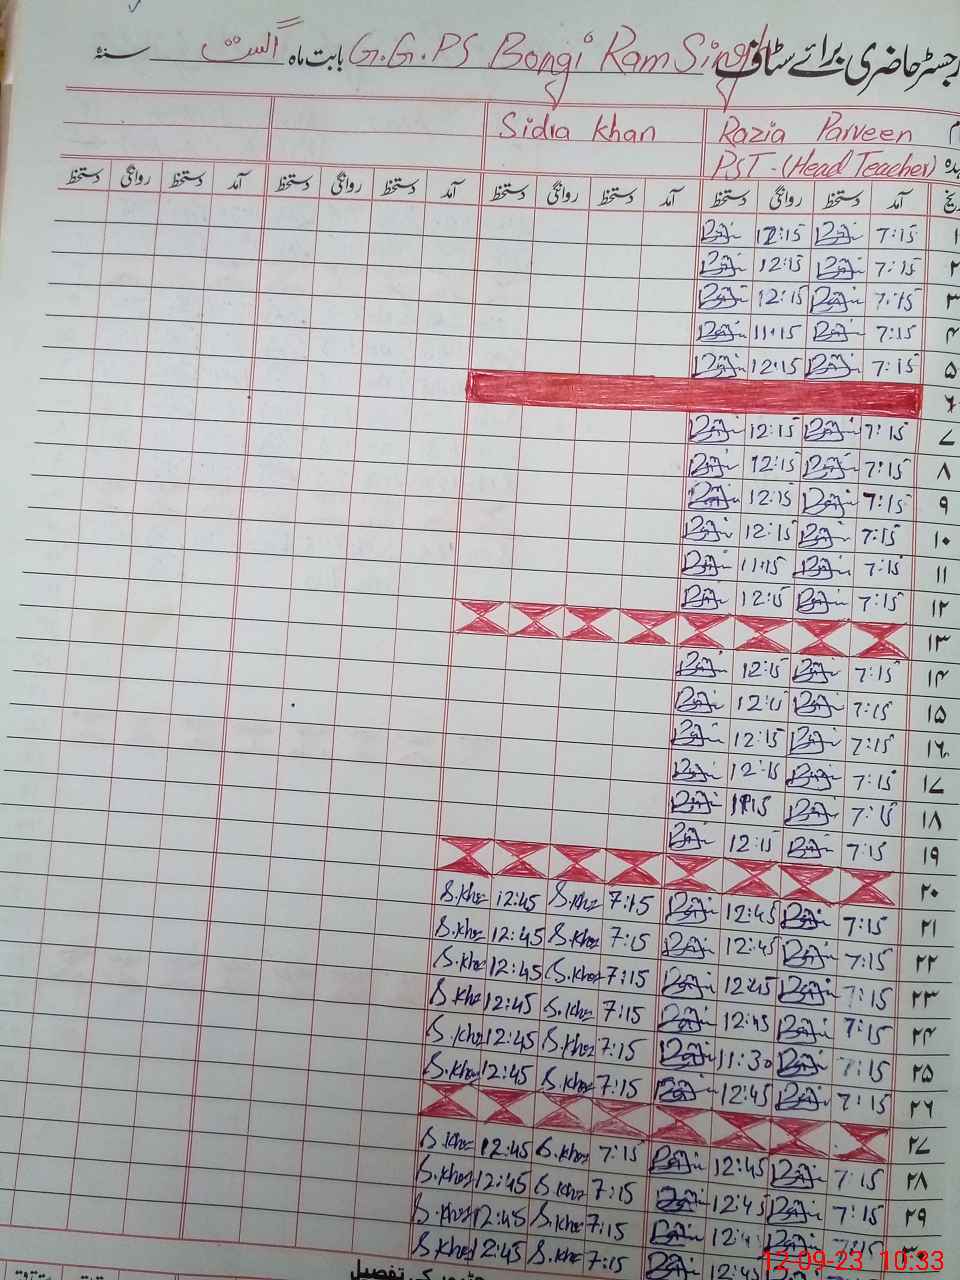 رجسٹر حاضری برائے سٹاف G.G.PS Bongi Ram Singh بابت ماہ اگست سنہ
Razia Parveen Sidra Khan
PST-(Head Teacher)
آمد دستخط روانگی دستخط آمد دستخط روانگی دستخط آمد دستخط روانگی دستخط آمد دستخط روانگی دستخط
۱ 7:15 12:15
۲ 7:15 12:15
۳ 7:15 12:15
۴ 7:15 11:15
۵ 7:15 12:15
۶
۷ 7:15 12:15
۸ 7:15 12:15
۹ 7:15 12:15
۱۰ 7:15 12:15
۱۱ 7:15 11:15
۱۲ 7:15 12:15
۱۳
۱۴ 7:15 12:15
۱۵ 7:15 12:15
۱۶ 7:15 12:15
۱۷ 7:15 12:15
۱۸ 7:15 11:15
۱۹ 7:15 12:15
۲۰
۲۱ 7:15 12:45 7:15 S.Khan 12:45 S.Khan
۲۲ 7:15 12:45 7:15 S.Khan 12:45 S.Khan
۲۳ 7:15 12:45 7:15 S.Khan 12:45 S.Khan
۲۴ 7:15 12:45 7:15 S.Khan 12:45 S.Khan
۲۵ 7:15 11:30 7:15 S.Khan 12:45 S.Khan
۲۶ 7:15 12:45 7:15 S.Khan 12:45 S.Khan
۲۷
۲۸ 7:15 12:45 7:15 S.Khan 12:45 S.Khan
۲۹ 7:15 12:45 7:15 S.Khan 12:45 S.Khan
۳۰ 7:15 7:15 S.Khan 12:45 S.Khan
12:45 7:15 S.Khan 12:45 S.Khan
کی تفصیل
12-09-23 10:33